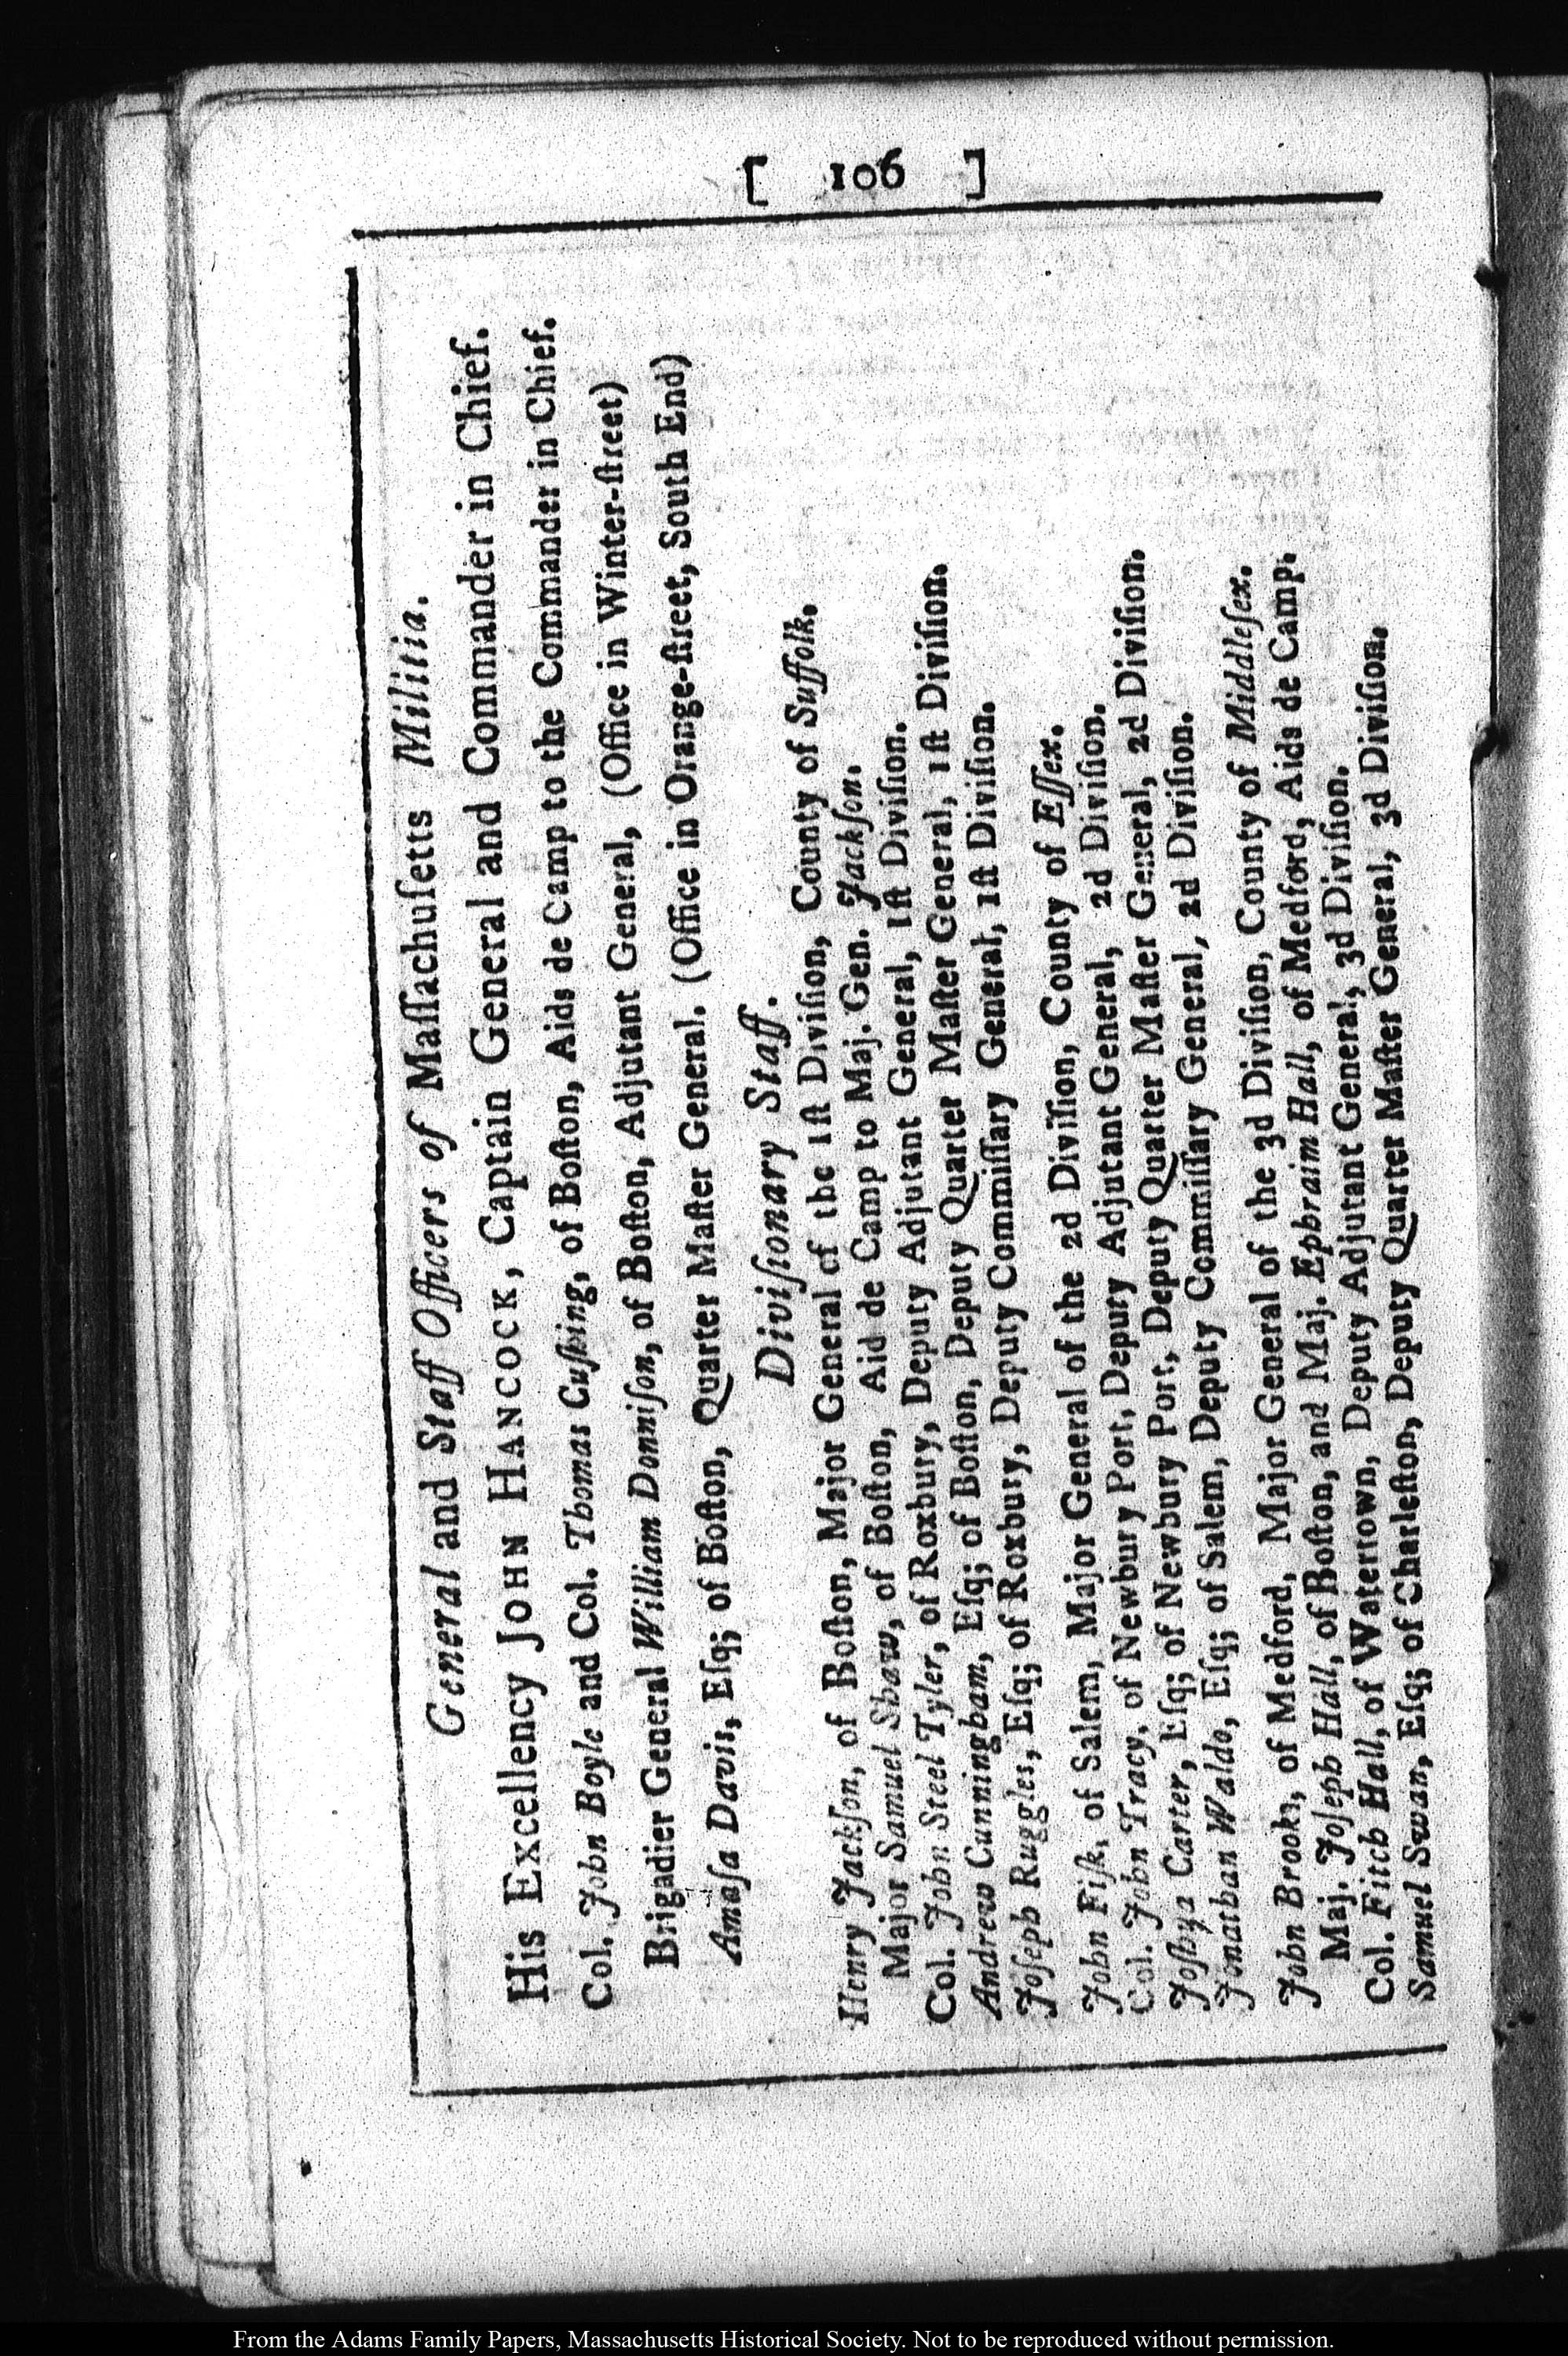 [ 106 ]
General and Staff Officers of Maſſachuſetts Militia.
His Excellency JOHN HANCOCK, Captain General and Commander in Chief.
Col. John Boyle and Col. Thomas Cuſhing, of Boſton, Aids de Camp to the Commander in Chief.
Brigadier General William Donniſon, of Boſton, Adjutant General, (Office in Winter-ſtreet)
Amaſa Davis, Eſq; of Boſton, Quarter Maſter General. (Office in Orange-ſtreet, South End)
Diviſionary Staff.
Henry Jackſon, of Boſton, Major General of the 1ſt Diviſion, County of Suffolk.
Major Samuel Shaw, of Boſton, Aid de Camp to Maj. Gen. Jackſon.
Col. John Steel Tyler, of Roxbury, Deputy Adjutant General, 1ſt Diviſion.
Andrew Cunningham, Eſq; of Boſton, Deputy Quarter Maſter General, 1ſt Diviſion.
Joſeph Ruggles, Eſq; of Roxbury, Deputy Commiſſary General, 1ſt Diviſion.
John Fiſk, of Salem, Major General of the 2d Diviſion, County of Eſſex.
Col. John Tracy, of Newbury Port, Deputy Adjutant General, 2d Diviſion.
Joſhya Carter, Eſq; of Newbury Port, Deputy Quarter Maſter General, 2d Diviſion.
Jonathan Waldo, Eſq; of Salem, Deputy Commiſſary General, 2d Diviſion.
John Brooks, of Medford, Major General of the 3d Diviſion, County of Middleſex.
Maj. Joſeph Hall, of Boſton, and Maj. Ephraim Hall, of Medford, Aids de Camp.
Col. Fitch Hall, of Watertown, Deputy Adjutant General, 3d Diviſion.
Samuel Swan, Eſq; of Charleſton, Deputy Quarter Maſter General, 3d Diviſion.
From the Adams Family Papers, Massachusetts Historical Society. Not to be reproduced without permission.